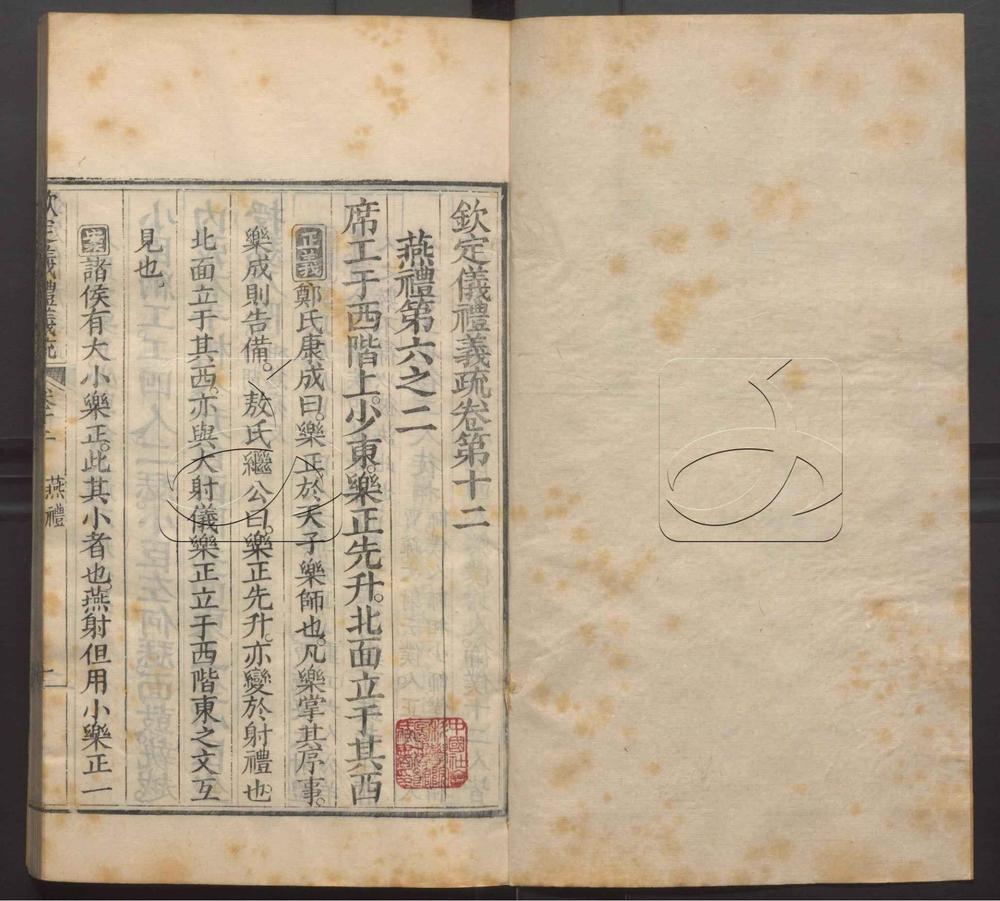 欽定儀禮義疏卷第十二
燕禮第六之二
席工于西階上。少東。樂正先升。北面立于其西
正義鄭氏康成曰。樂正於天子樂師也。凡樂掌其序事。
樂成則告備。敖氏繼公曰。樂正先升。亦變於射禮也
北面立于其西。亦與大射儀樂正立于西階東之文互
見也。
案諸侯有大小樂正。此其小者也。燕射但用小樂正一
欽定儀禮義疏 燕禮 一